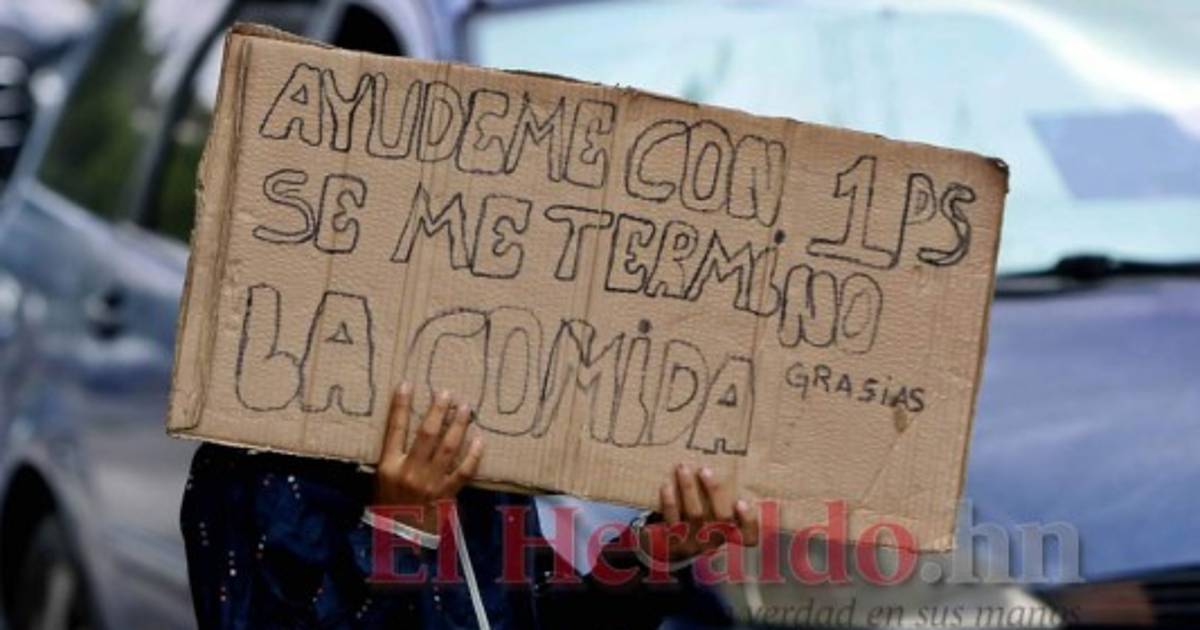 AYUDEME CON 1 PS
SE ME TERMiNO
LA COMiDA GRASiAS
El Heraldo.hn
verdad en sus manos